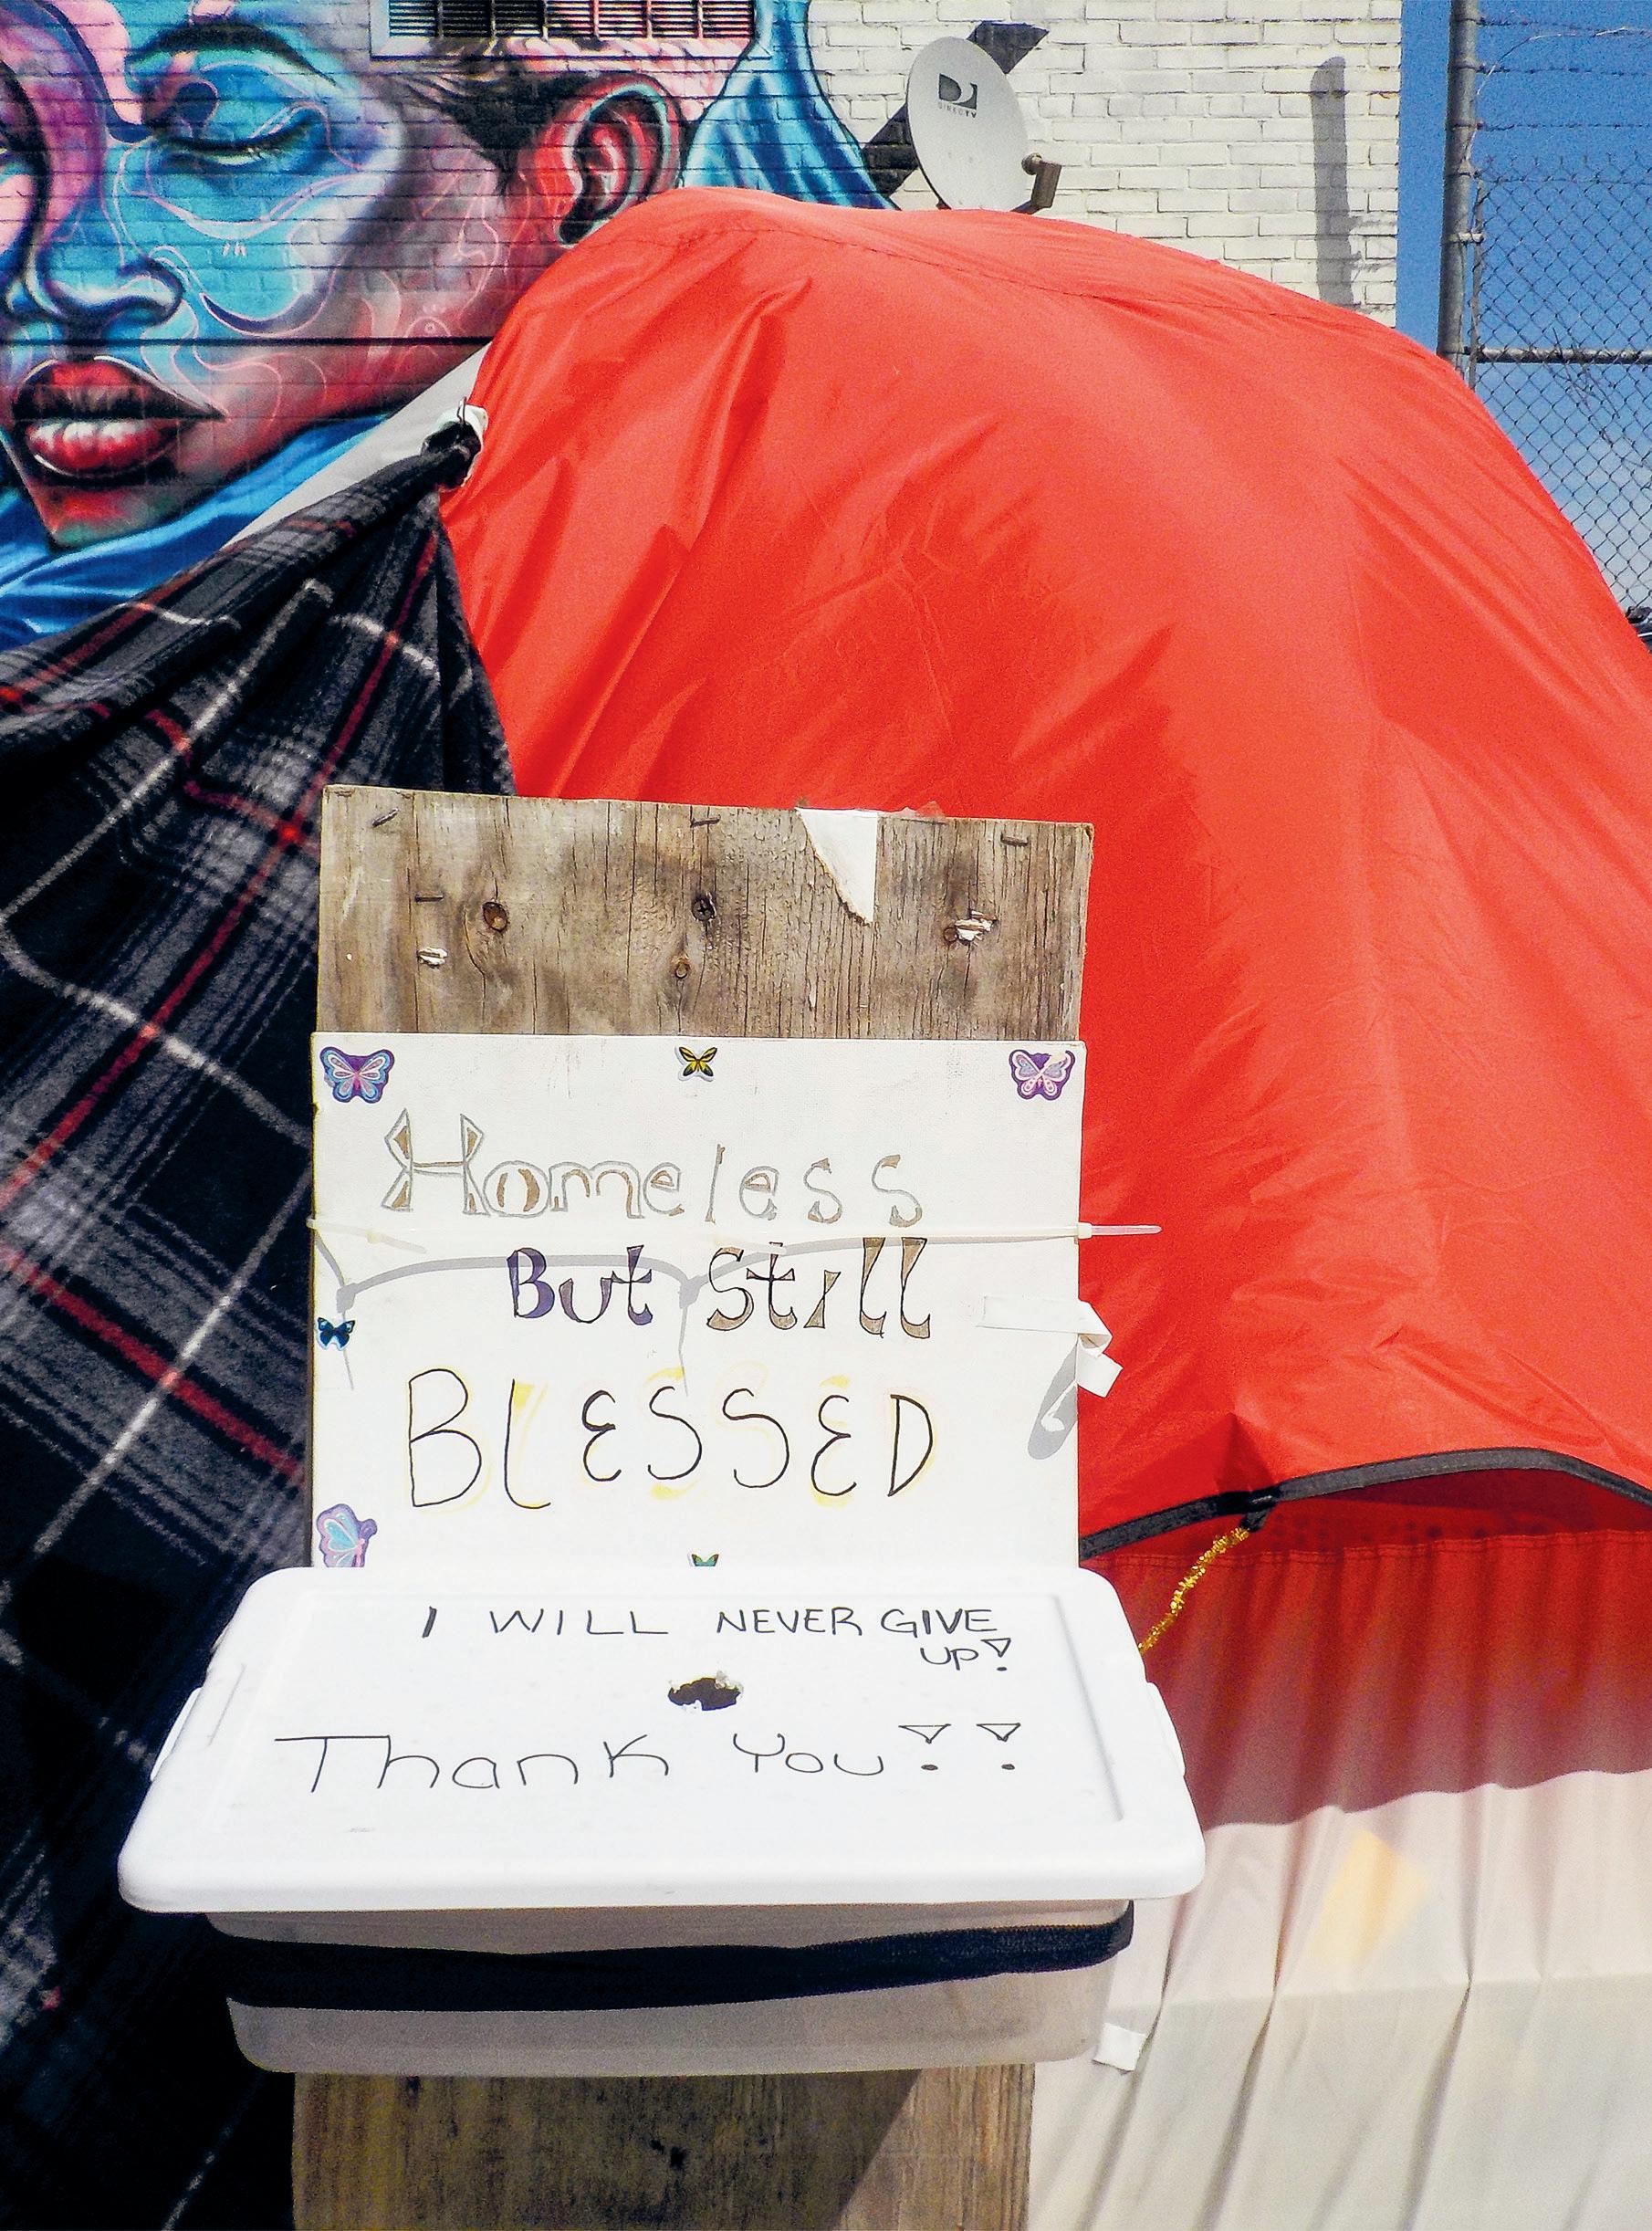 DIRECTV
Homeless
But Still
BLESSED
I WILL NEVER GIVE
UP!
Thank You!!